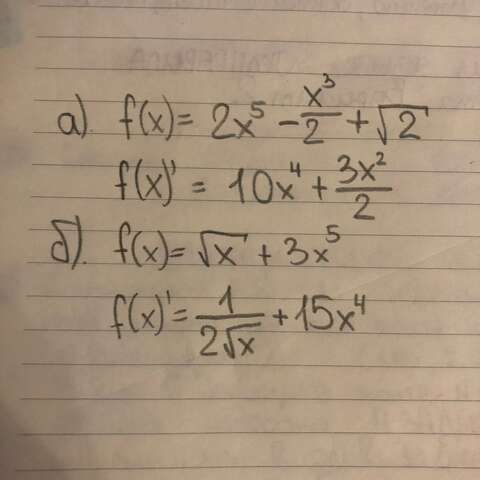 а). f(x) = 2x⁵ - x³/2 + √2
f(x)' = 10x⁴ + 3x²/2
б). f(x) = √x + 3x⁵
f(x)' = 1/(2√x) + 15x⁴